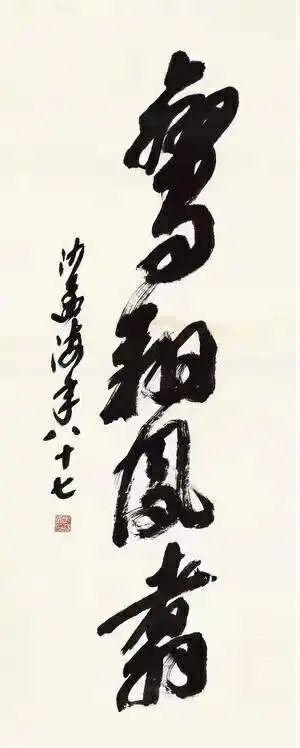 鸞翔鳳翥
沙孟海年八十七